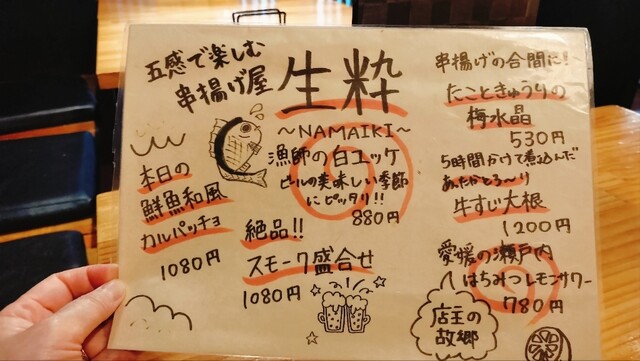 五感で楽しむ
串揚げ屋
生粋
~NAMAIKI~
漁師の白ユッケ
ビールの美味しい季節
にピッタリ!!
880円
本日の
鮮魚和風
カルパッチョ
1080円
絶品!!
スモーク盛合せ
1080円
串揚げの合間に!!
たこときゅうりの
梅水晶
530円
5時間かけて煮込んだ
あったかとろ~り
牛すじ大根
1200円
愛媛の瀬戸内
はちみつレモンサワー
780円
店主の
故郷